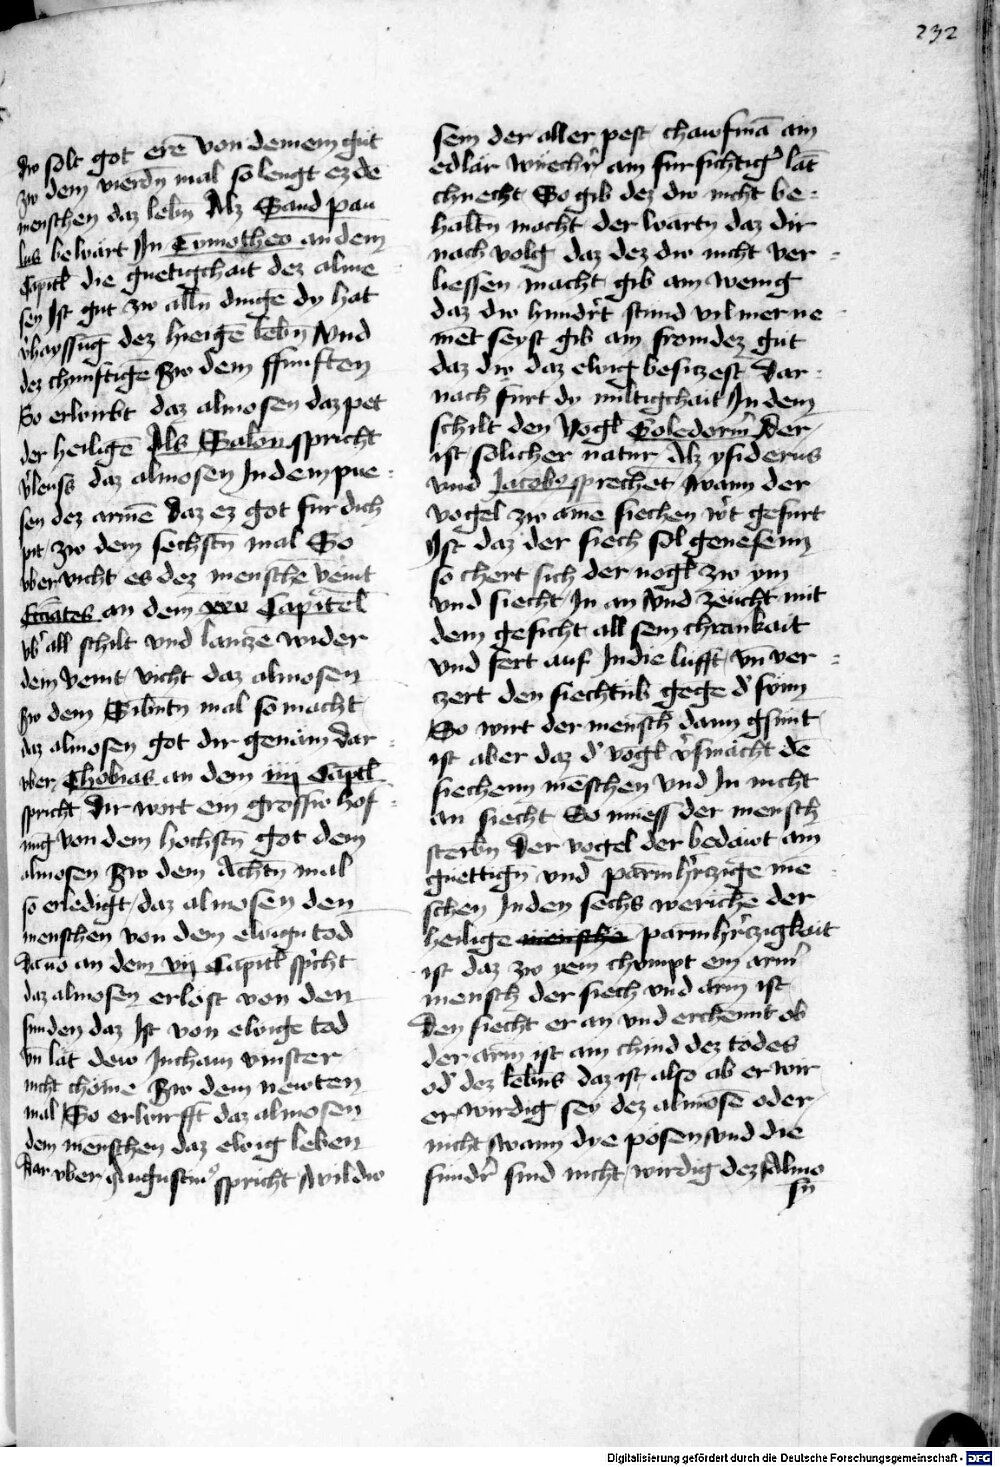 232
dw solt got erē von deinem gut
zw dem vierdn mal so lengt ez de
menschen daz lebn Alz Sand pau
lus bewart In Tymotheo an dem
Capitl die guetigchait dez alme
sen Ist gut zw alln dinge dy hat
v̓hayssūg dez hieigē lebn Und
dez chunftigē Zw dem ffunften
So erwirbt daz almosen daz pet
der heiligē Als Salon spricht
v̓sleuss daz almosen In dem pue
sen dez armē Daz ez got fur dich
pit zw dem sechstn mal So
vbervicht es dez mensche veint
an dem xxv Capitel
vb̓ all schilt vnd lantze wider
dein veint vicht daz almosen
zw dem Sibntn mal so macht
daz almosen got dir genäm Dar
vber Thobias an dem iiij Captl
spricht Dir wirt ein grossw hof
nūg von dem hochstn got dem
almosen Zw dem Achtn mal
so erledigt daz almosen den
menschen von dem ewign tod
an dem vij Capitl sp̓cht
daz almosen erlöst von den
sunden daz Ist von ewige tod
vn̄ lät dew Incham vinster
nicht chöme Zw dem newten
mal So erwirfft daz almosen
dem menschen daz ewig leben
Dar vber Augustin⁹ spricht Wildw
sein der aller pest chawfmā am
edlär wuechr̓ am fursichtig̓ lāt
chnecht So gib dez dw nicht be
haltn macht der wartn daz dir
nach volg daz dez dw nicht ver
liessen macht gib am wenig
daz dw hundr̓t stund vil mer ne
mēt seyst gib am fromdez gut
daz dw daz ewig besitzest Dar
nach furt dy miltigchait In dem
schilt den Vogl Goledorm̓ Der
ist solicher natur Alz ysiderus
vnd Jacobo sprechēt wann der
vogel zw ame siechen wr̓t gefurt
Ist daz der siech sol genesenn
so chert sich der uogl zw ym
vnd siecht In an vnd zeucht mit
dem gesicht all sein chrankait
vnd fert auf In die lufft vn̄ ver
czert den siechtūb gege d̓ sunn
So wirt der mensch dann gsunt
ist aber daz d̓ vogl v̓smächt de
siechenn mēschen vnd In nicht
an siecht So muess der mensch
sterbn Der vogel der bedäwt am
güettign vnd parmhr̓tzige me
schen In den sechs werichē der
heilige parmhr̓tzigkait
ist daz zw yem chompt ein arm̓
mensch der siech vnd arm ist
Den siecht er an vnd erchennt ob
der arm ist am chind dez todes
od̓ dez lebns daz ist also ab er wir
er wirdig sey dez almosē oder
nicht wann dye pösen vnd die
sundr̓ sind nicht wirdig dez Almo
sn
Digitalisierung gefördert durch die Deutsche Forschungsgemeinschaft - DFG